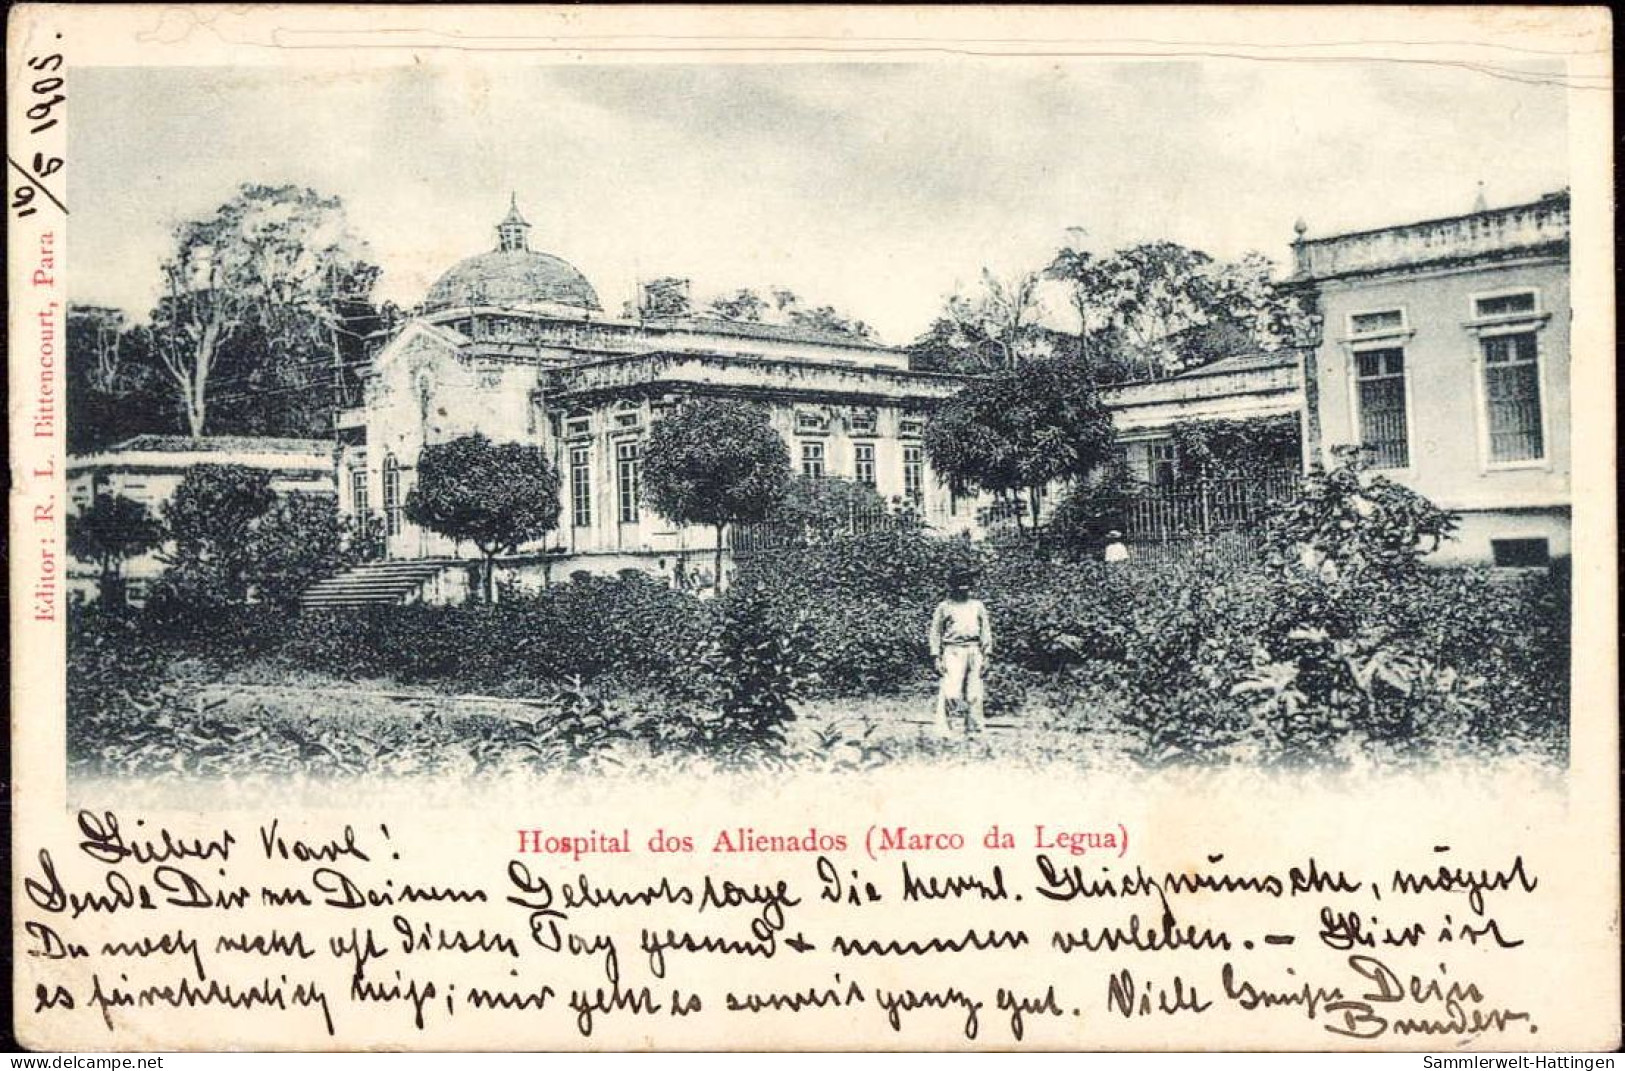 16/5 1905.
Editor: R. L. Bittencourt, Para
Hospital dos Alienados (Marco da Legua)
Lieber Karl!
Sende Dir zu Deinem Geburtstage die herzl. Glückwünsche, mögest
Du noch recht oft diesen Tag gesund & munter verleben. – Hier ist
es fürchterlich heiß; mir geht es soweit ganz gut. Viele Grüße Dein
Bruder.
delcampe.net
Sammlerwelt-Hattingen